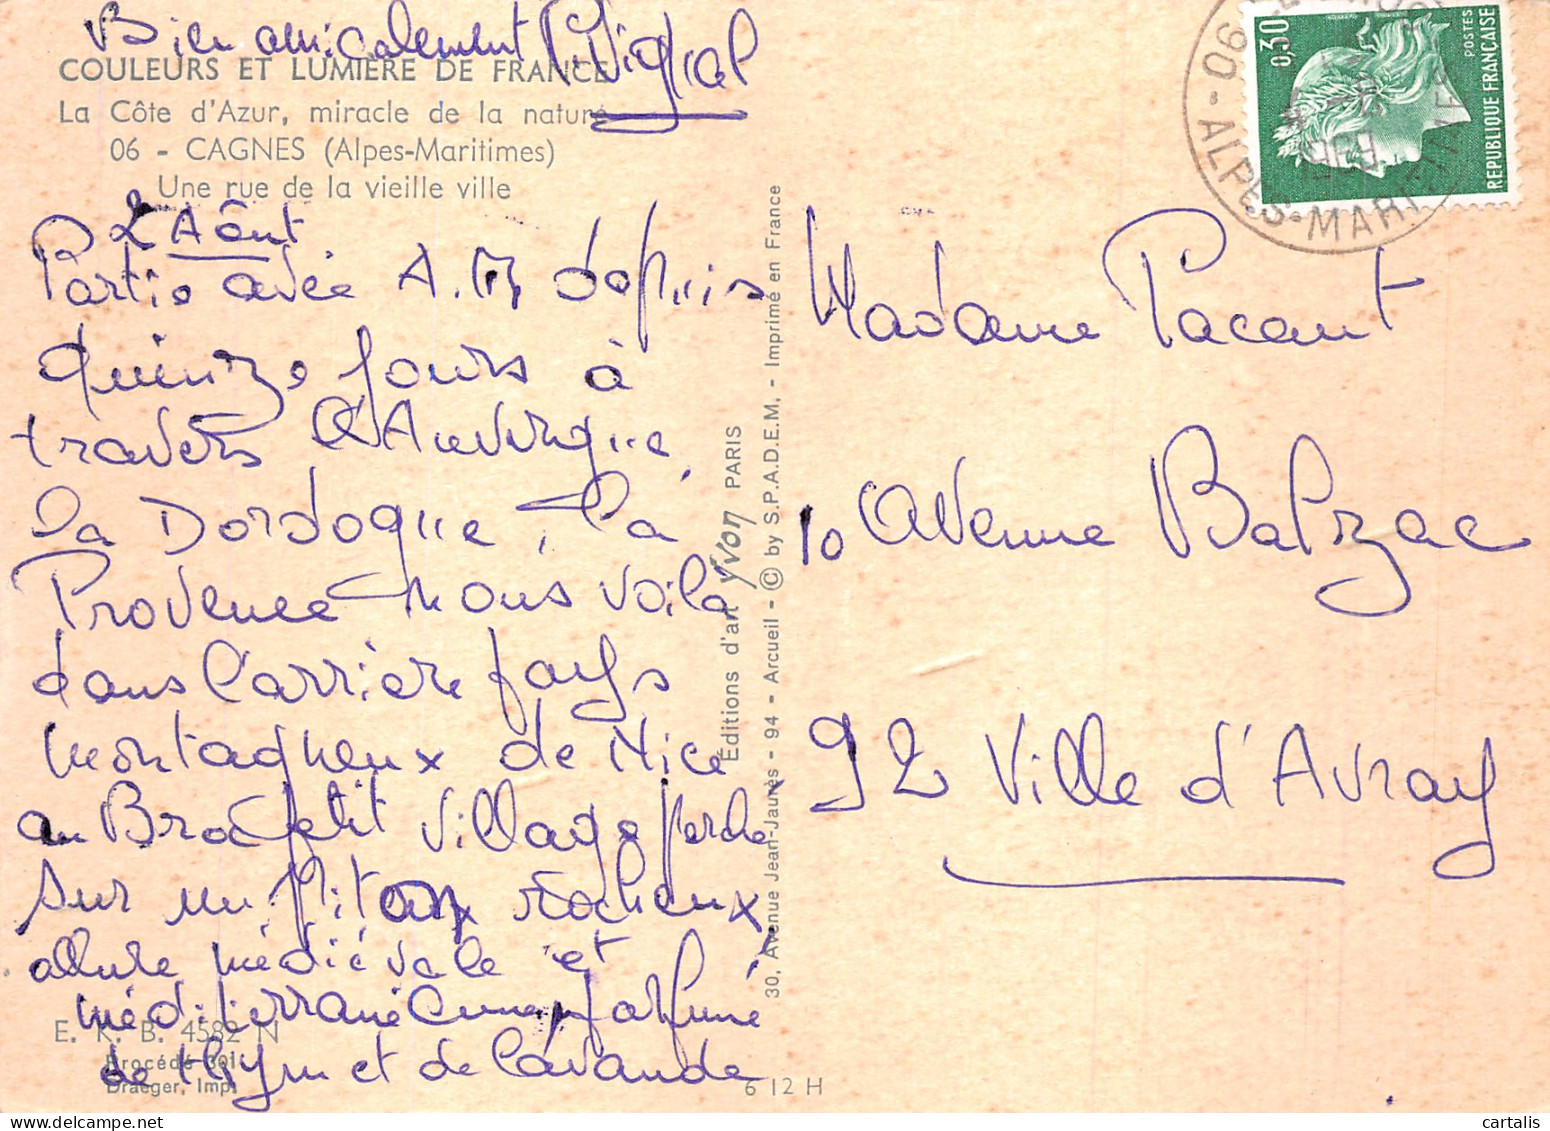 Bien amicalement P. Vignal
COULEURS ET LUMIÈRE DE FRANCE
La Côte d'Azur, miracle de la nature
06 - CAGNES (Alpes-Maritimes)
Une rue de la vieille ville
2 Août
Partie avec A.M depuis
quinze jours à
travers l'Auvergne,
la Dordogne, la
Provence nous voilà
dans l'arrière pays
montagneux de Nice
au Broc petit village perché
sur un piton rocheux
allure médiévale et
méditerranéenne parfumé
de thym et de lavande
E. K. B. 4582 N
Procédé 301
Draeger, Imp.
6 12 H
Éditions d'art Yvon PARIS
30, Avenue Jean-Jaurès - 94 - Arcueil - © by S.P.A.D.E.M. - Imprimé en France
0,30
POSTES
REPUBLIQUE FRANÇAISE
06 - ALPES-MARITIMES
Madame Pacaut
10 Avenue Balzac
92 Ville d'Avray
cartalis